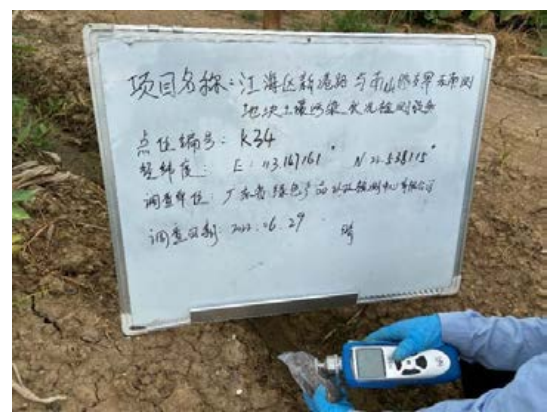 项目名称:江海区新港路与南山路交界东南侧
地块土壤污染状况检测设备
点位编号:K34
经纬度: E:113.167161° N 22.538115°
调查单位:广东省绿色产品认证检测中心有限公司
调查日期:2022.06.29